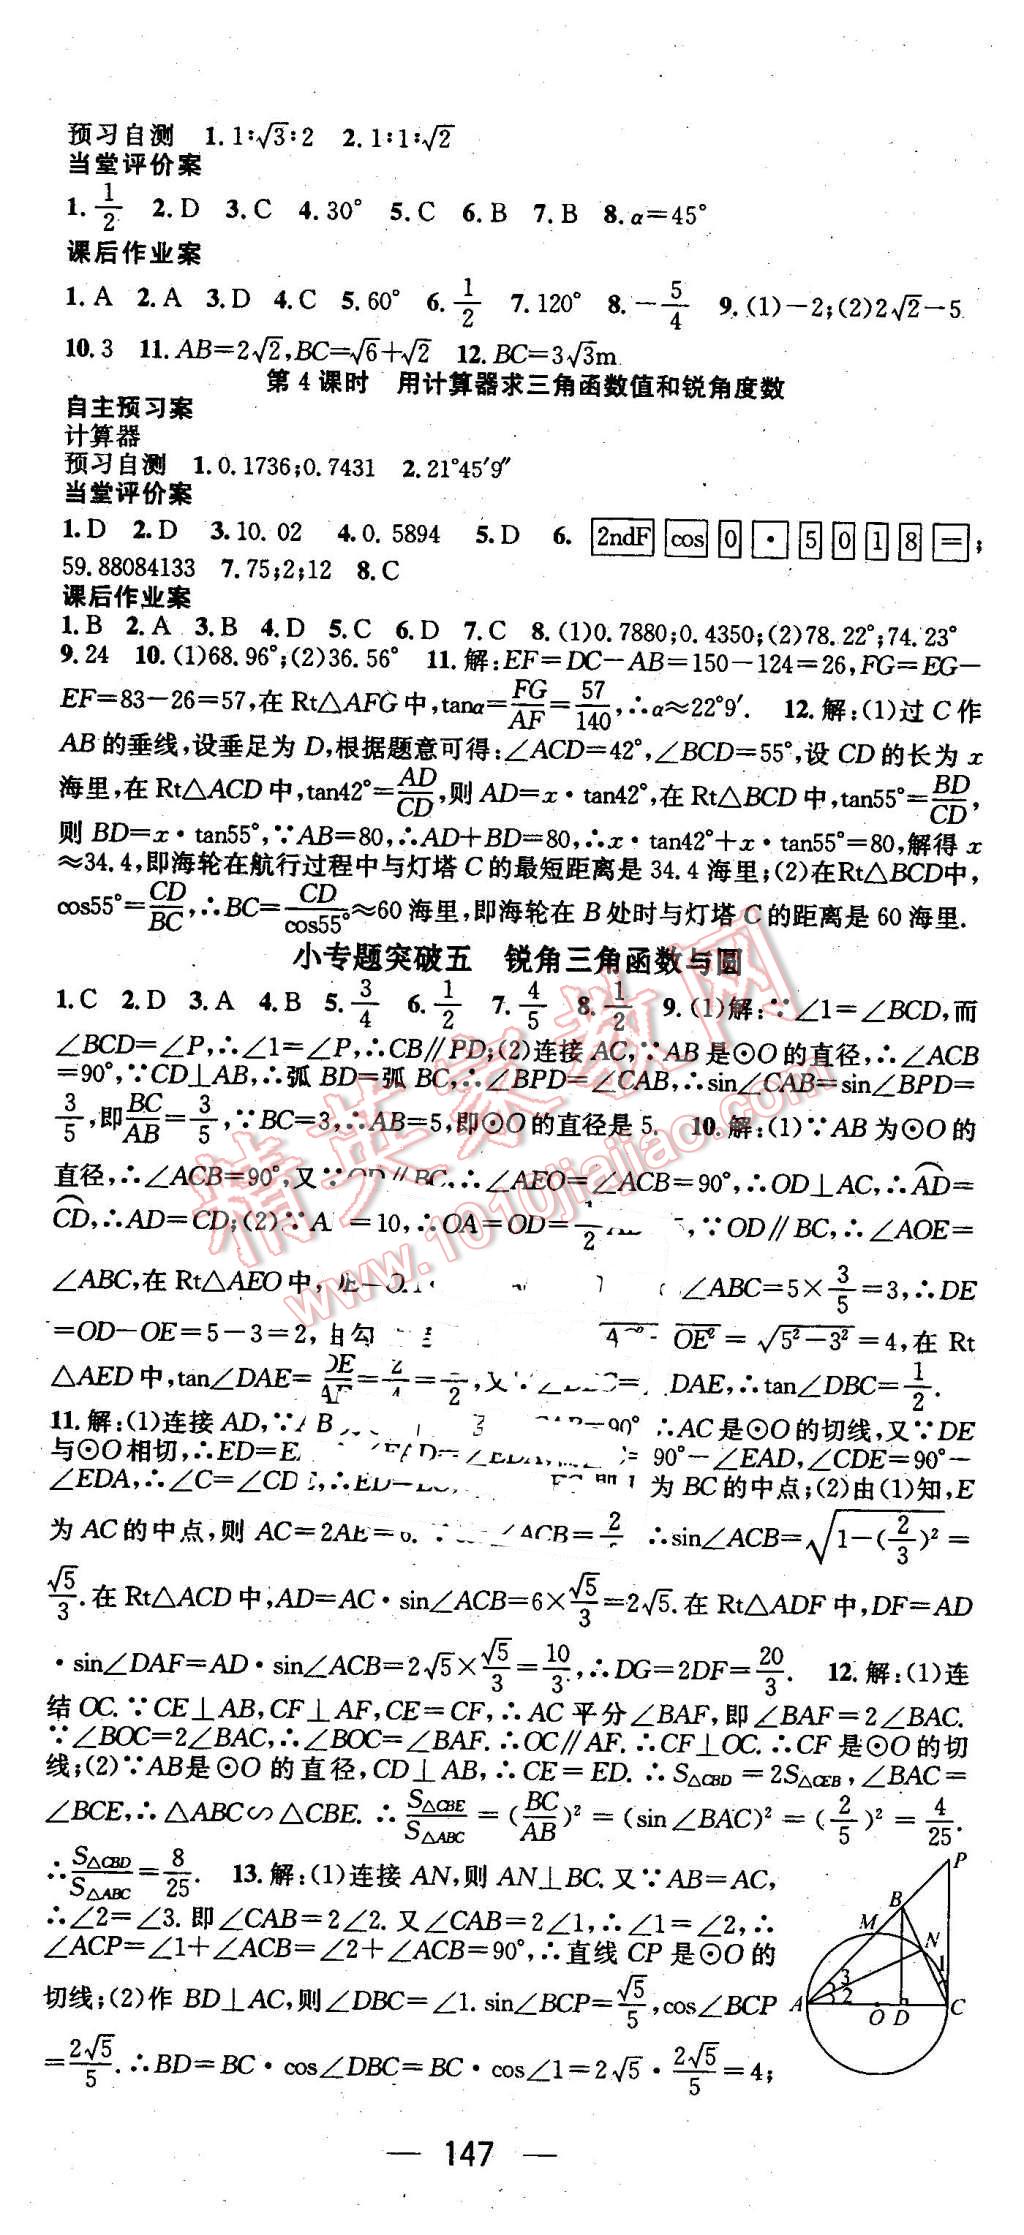 预习自测 1.1∶√3∶2 2.1∶1∶√2
当堂评价案
1.1/2 2.D 3.C 4.30° 5.C 6.B 7.B 8.α=45°
课后作业案
1.A 2.A 3.D 4.C 5.60° 6.1/2 7.120° 8.-5/4 9.(1)-2;(2)2√2-5
10.3 11.AB=2√2,BC=√6+√2 12.BC=3√3m
第4课时 用计算器求三角函数值和锐角度数
自主预习案
计算器
预习自测 1.0.1736;0.7431 2.21°45′9″
当堂评价案
1.D 2.D 3.10.02 4.0.5894 5.D 6. 2ndF cos 0 · 5 0 1 8 =;
59.88084133 7.75;2;12 8.C
课后作业案
1.B 2.A 3.B 4.D 5.C 6.D 7.C 8.(1)0.7880;0.4350;(2)78.22°;74.23°
9.24 10.(1)68.96°;(2)36.56° 11.解:EF=DC-AB=150-124=26,FG=EG-
EF=83-26=57,在Rt△AFG中,tanα=FG/AF=57/140,∴α≈22°9′. 12.解:(1)过C作
AB的垂线,设垂足为D,根据题意可得:∠ACD=42°,∠BCD=55°,设CD的长为x
海里,在Rt△ACD中,tan42°=AD/CD,则AD=x·tan42°,在Rt△BCD中,tan55°=BD/CD,
则BD=x·tan55°,∵AB=80,∴AD+BD=80,∴x·tan42°+x·tan55°=80,解得x
≈34.4,即海轮在航行过程中与灯塔C的最短距离是34.4海里;(2)在Rt△BCD中,
cos55°=CD/BC,∴BC=CD/cos55°≈60海里,即海轮在B处时与灯塔C的距离是60海里.
小专题突破五 锐角三角函数与圆
1.C 2.D 3.A 4.B 5.3/4 6.1/2 7.4/5 8.1/2 9.(1)解:∵∠1=∠BCD,而
∠BCD=∠P,∴∠1=∠P,∴CB∥PD;(2)连接AC,∵AB是⊙O的直径,∴∠ACB
=90°,∵CD⊥AB,∴弧BD=弧BC,∴∠BPD=∠CAB,∴sin∠CAB=sin∠BPD=
3/5,即BC/AB=3/5,∵BC=3,∴AB=5,即⊙O的直径是5. 10.解:(1)∵AB为⊙O的
直径,∴∠ACB=90°,又∵OD∥BC,∴∠AEO=∠ACB=90°,∴OD⊥AC,∴A͡D=
C͡D,∴AD=CD;(2)∵A =10,∴OA=OD= ,∵OD∥BC,∴∠AOE=
∠ABC,在Rt△AEO中, ∠ABC=5×3/5=3,∴DE
=OD-OE=5-3=2, 由勾 OE²=√(5²-3²)=4,在Rt
△AED中,tan∠DAE=DE/AE=2/4= ,又∵∠ = DAE,∴tan∠DBC=1/2.
11.解:(1)连接AD,∵AB =90° ∴AC是⊙O的切线,又∵DE
与⊙O相切,∴ED=EA =∠EDA, 90°-∠EAD,∠CDE=90°-
∠EDA,∴∠C=∠CD ,∴ED=EC, 为BC的中点;(2)由(1)知,E
为AC的中点,则AC=2AE=6. ∠ACB= ∴sin∠ACB=√(1-(2/3)²)=
√5/3.在Rt△ACD中,AD=AC·sin∠ACB=6×√5/3=2√5.在Rt△ADF中,DF=AD
·sin∠DAF=AD·sin∠ACB=2√5×√5/3=10/3,∴DG=2DF=20/3. 12.解:(1)连
结OC.∵CE⊥AB,CF⊥AF,CE=CF,∴AC平分∠BAF,即∠BAF=2∠BAC.
∵∠BOC=2∠BAC,∴∠BOC=∠BAF.∴OC∥AF.∴CF⊥OC.∴CF是⊙O的切
线;(2)∵AB是⊙O的直径,CD⊥AB,∴CE=ED.∴S△CBD=2S△CEB,∠BAC=
∠BCE,∴△ABC∽△CBE.∴S△CBE/S△ABC=(BC/AB)²=(sin∠BAC)²=(2/5)²=4/25.
∴S△CBD/S△ABC=8/25. 13.解:(1)连接AN,则AN⊥BC.又∵AB=AC,
∴∠2=∠3.即∠CAB=2∠2.又∠CAB=2∠1,∴∠1=∠2,∴
∠ACP=∠1+∠ACB=∠2+∠ACB=90°,∴直线CP是⊙O的
切线;(2)作BD⊥AC,则∠DBC=∠1.sin∠BCP=√5/5,cos∠BCP
=2√5/5.∴BD=BC·cos∠DBC=BC·cos∠1=2√5·2√5/5=4;
P
B
M
N
1
3
2
A
O
D
C
— 147 —
精英家教网
www.1010jiajiao.com